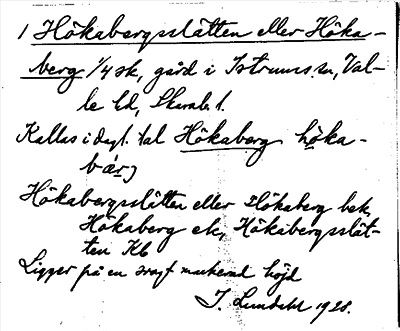 1 Hökabergsslätten eller Höka-
berg 1/4 sk, gård i Istrums sn, Val-
le hd, Skarab. l.
Kallas i dagl. tal Hökaberg höka-
bärj
Hökabergsslätten eller Hökaberg bek,
Hökaberg ek, Hökabergsslät-
ten Kb
Ligger på en svagt markerad höjd
J. Lundahl 1928.